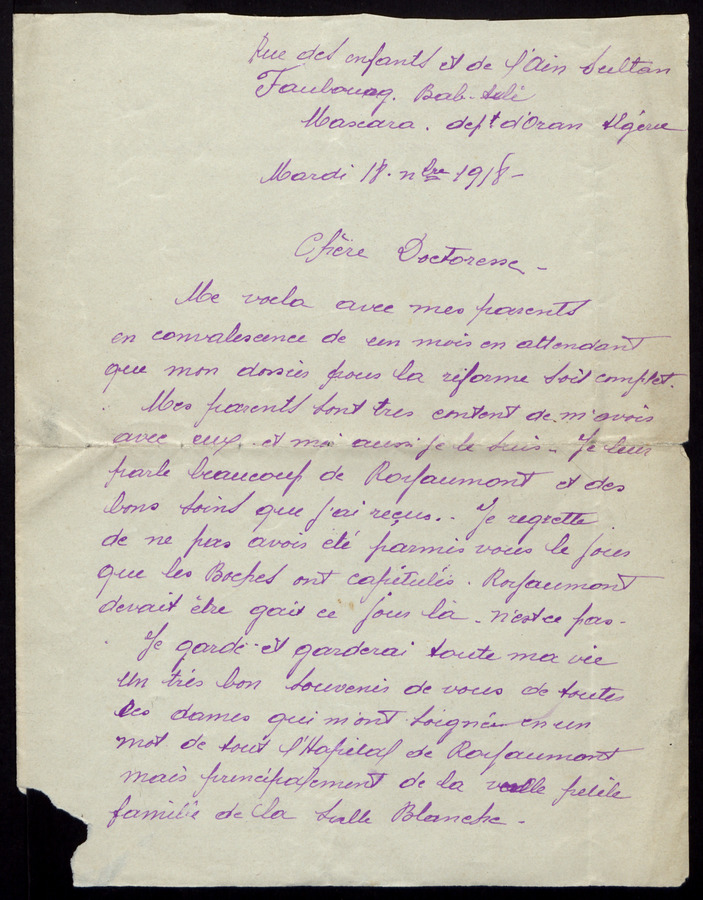 Rue des enfants et de l'Ain Sultan
Faubourg. Bab-Ali
Mascara. dept d'Oran Algérie
Mardi 18. nbre 1918-
Chère Doctoresse -
Me voila avec mes parents
en convalescence de un mois en attendant
que mon dossier pour la réforme soit complet.
Mes parents sont tres content de m'avoir
avec eux. et moi aussi je le suis - Je leur
parle beaucoup de Royaumont et des
bons soins que j'ai reçus.. Je regrette
de ne pas avoir été parmis vous le jour
que les Boches ont capitulés. Royaumont
devait être gait ce jour là - n'est ce pas -
Je garde et garderai toute ma vie
un très bon souvenir de vous de toutes
les dames qui m'ont soignée en un
mot de tout l'Hopital de Royaumont
mais principalement de la petite
famille de la Salle Blanche -